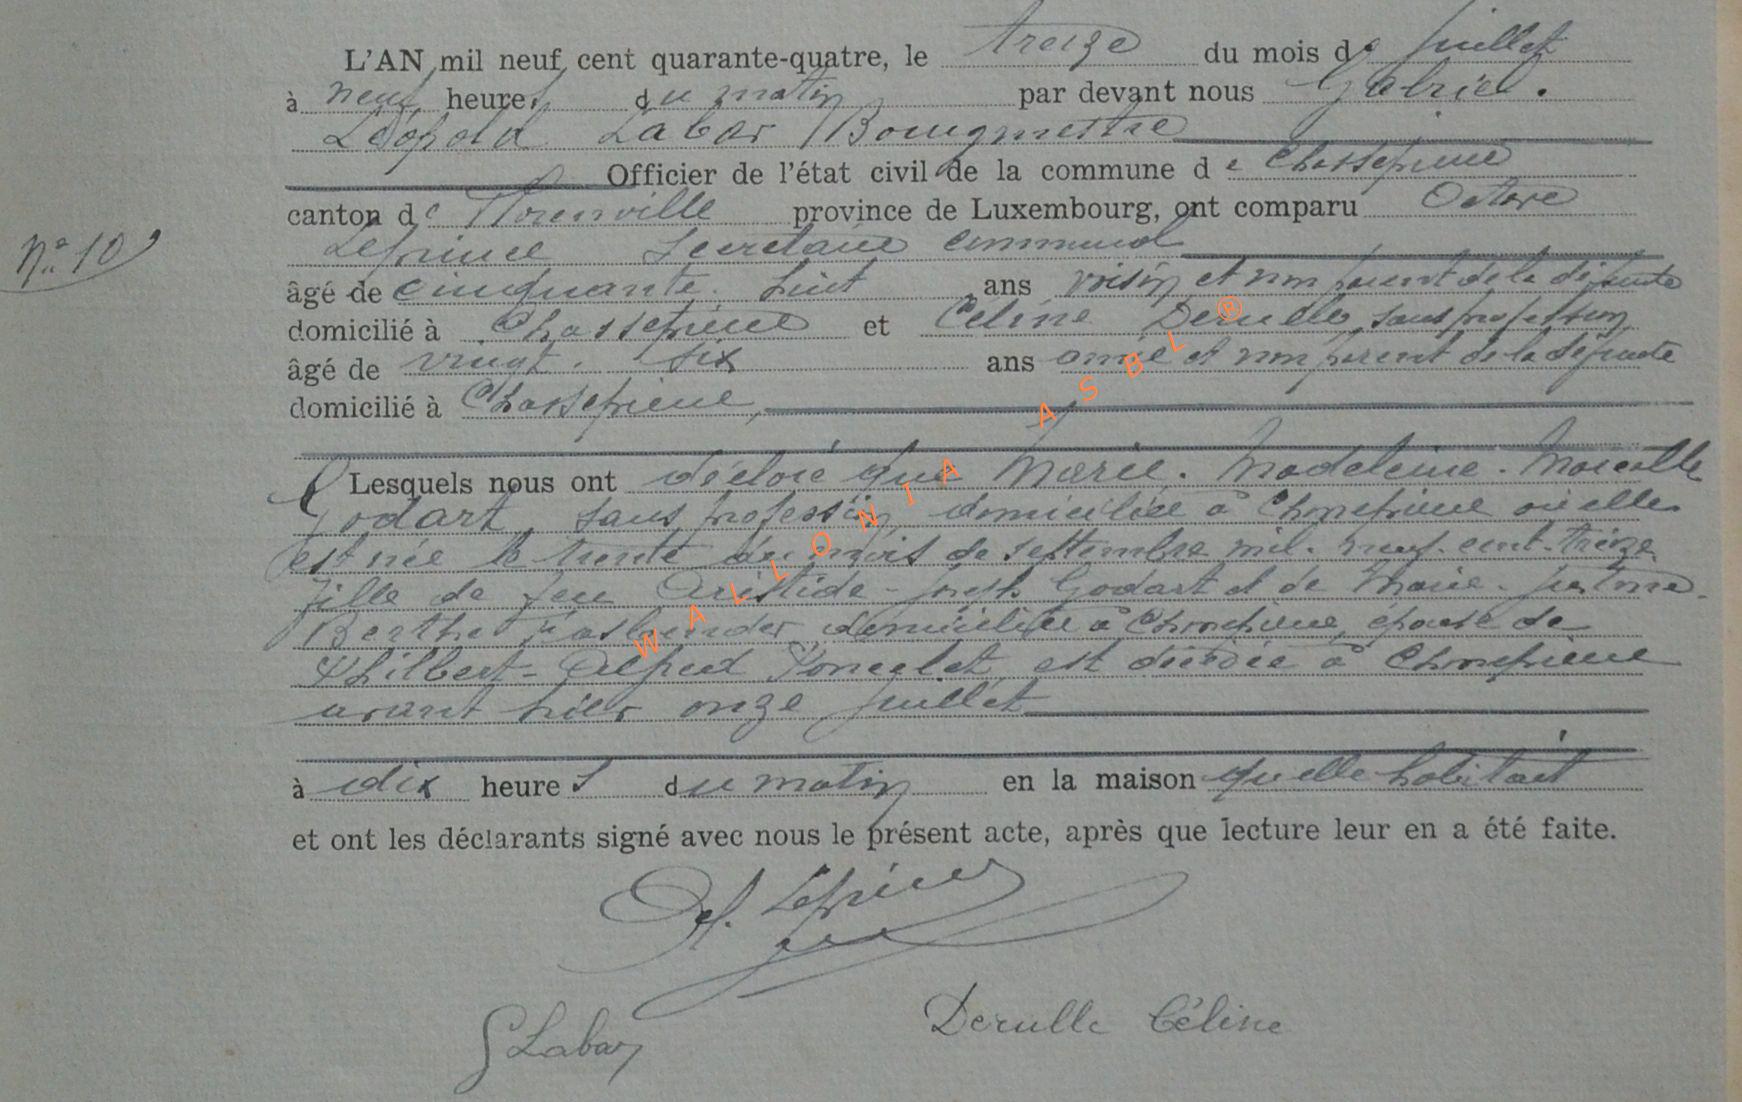 L'AN mil neuf cent quarante-quatre, le treize du mois de juillet
à neuf heures du matin par devant nous Gabriel.
Léopold Labar Bourgmestre
Officier de l'état civil de la commune de Chassepierre
canton de Florenville province de Luxembourg, ont comparu Octave
N° 10
Leprince Secrétaire communal
âgé de cinquante. huit ans voisin et non parent de la défunte
domicilié à Chassepierre et Céline Derulle, sans profession
âgé de vingt. six ans amie et non parent de la défunte
domicilié à Chassepierre,
Lesquels nous ont déclaré que Marie. Madeleine. Marcelle
Godart, sans profession, domiciliée à Chassepierre où elle
est née le trente du mois de septembre mil. neuf. cent. treize
fille de feu Aristide-Joseph Godart et de Marie.
Berthe domiciliée à Chassepierre, épouse de
Philbert-Alfred Poncelet, est décédée à Chassepierre
avant hier onze juillet
à dix heures du matin en la maison qu'elle habitait
et ont les déclarants signé avec nous le présent acte, après que lecture leur en a été faite.
Leprince
G Labar
Derulle Céline
WALLONIA ASBL ®